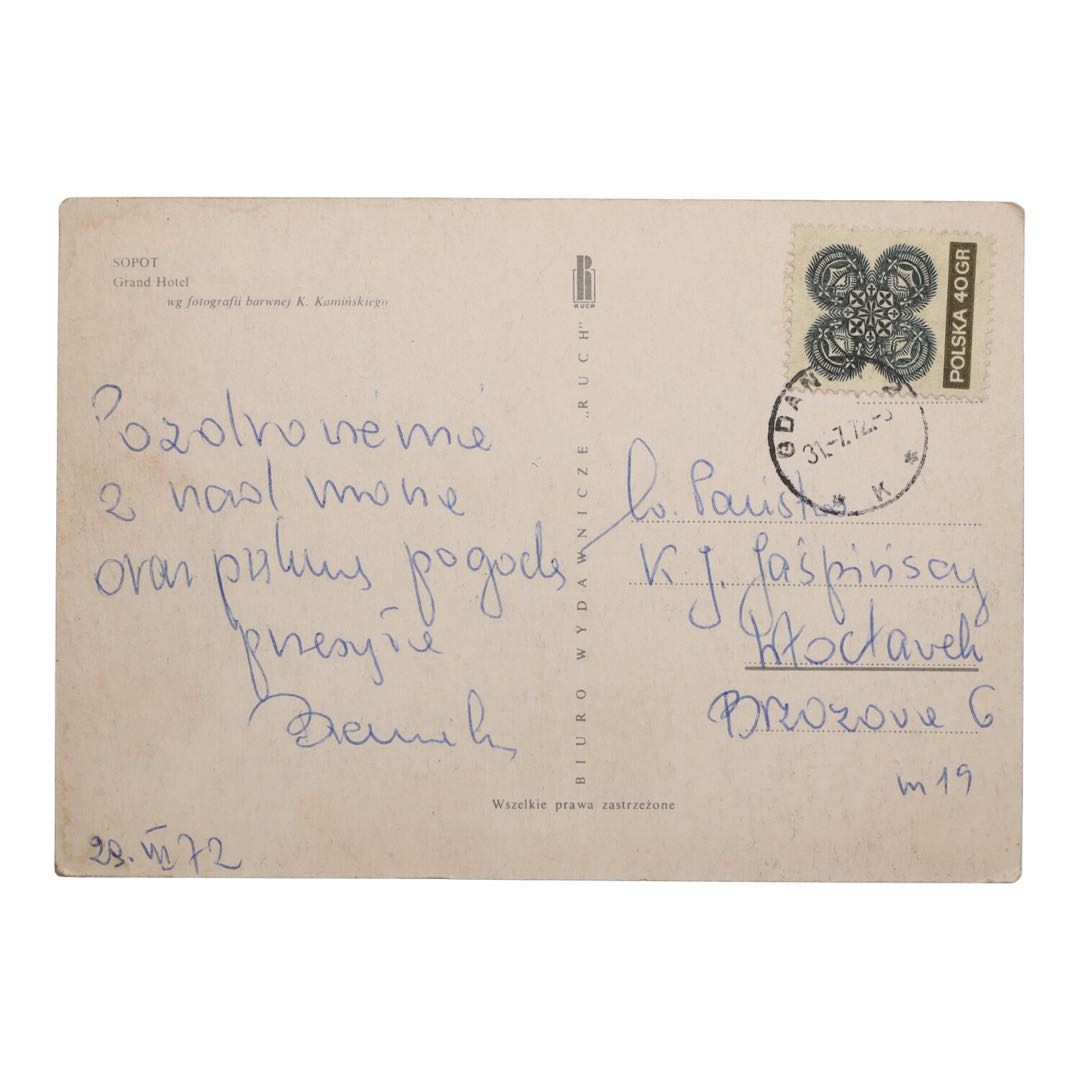 SOPOT
Grand Hotel
wg fotografii barwnej K. Kamińskiego
Pozdrowienia
z nad morza
oraz pogodę
przesyła
29. VII 72
RUCH
BIURO WYDAWNICZE „RUCH”
Wszelkie prawa zastrzeżone
POLSKA 40 GR
31.-7.72.-
K
W. Państwo
K J. Jaśpińscy
Włocławek
Brzozowa 6
m 19